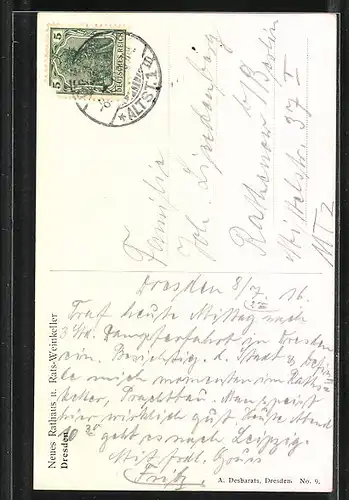 5 DEUTSCHES REICH 5
* ALTST. 1 m
Familie
Joh. Lindenberg
Rathenow b/Berlin
Mittelstr. 37 I
Dresden 8/7. 16.
Traf heute Mittag nach
3 Std. Dampferfahrt in Dresden
ein. Besichtig. d. Stadt &
mich momentan im Raths-
keller, Prachtbau. Man speist
hier wirklich gut. Heute Abend
10 30 geht es nach Leipzig.
Mit frdl. Gruss
Fritz
Neues Rathaus u. Rats-Weinkeller
Dresden
A. Desbarats, Dresden No. 9.